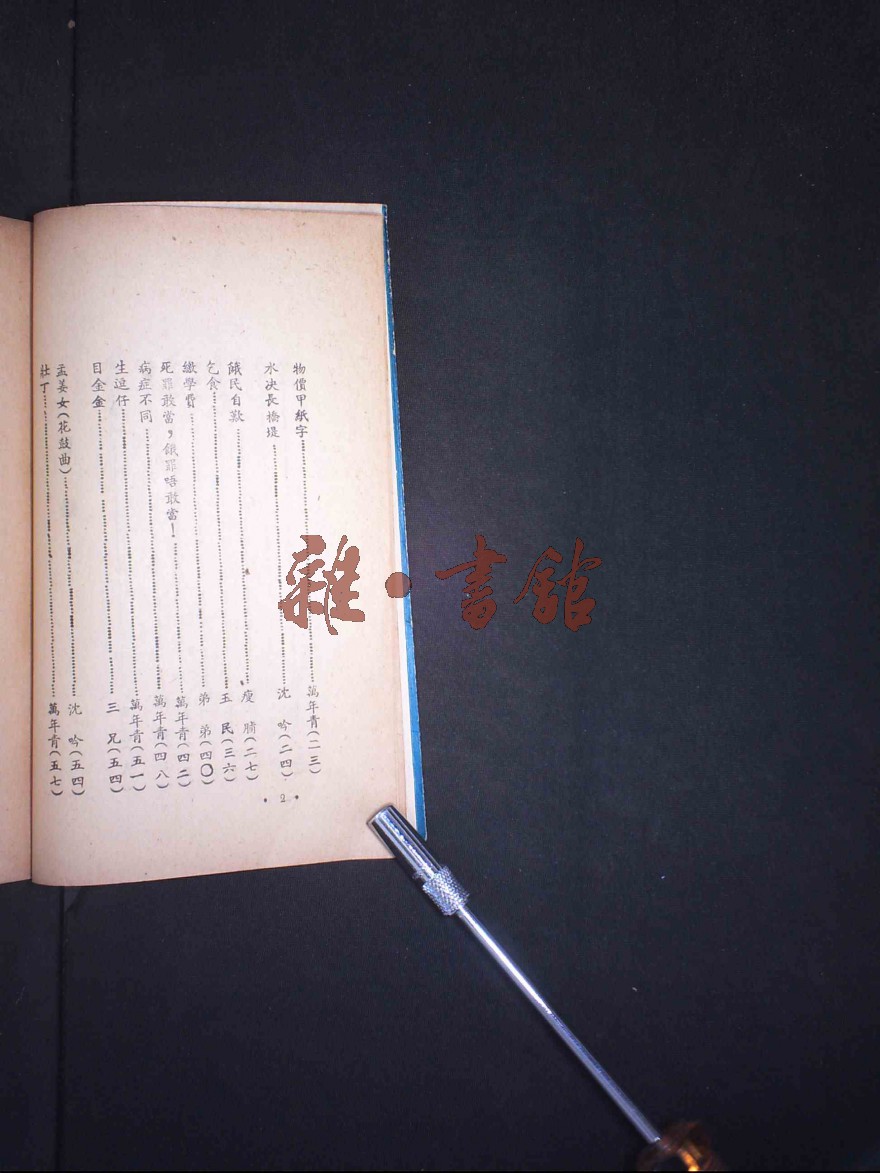 物價甲紙字……萬年青(二三)
水決長橋堤……沈 吟(二四)
餓民自歎……瘦 腩(二七)
乞食……玉 民(三六)
繳學費……弟 弟(四〇)
死罪敢當，餓罪唔敢當！……萬年青(四二)
病症不同……萬年青(四八)
生迫仔……萬年青(五一)
目金金……三 兄(五四)
孟姜女(花鼓曲)……沈 吟(五四)
壯丁……萬年青(五七)
• 2 •
雜·書館